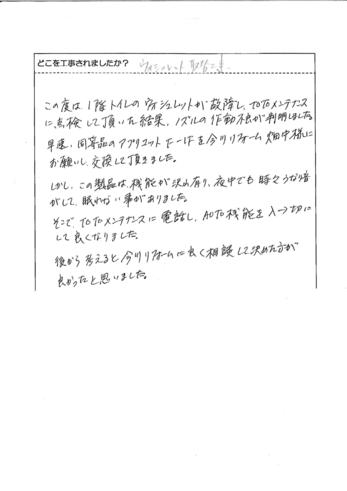 どこを工事されましたか? ウォシュレット 取替工事
この度は1階トイレのウォシュレットが故障し、TOTOメンテナンス
に点検して頂いた結果、ノズルの作動不良が判明しました。
早速、同等品のアプリコット F-1Fを今川リフォーム 畑中様に
お願いし、交換して頂きました。
しかし、この製品は、機能が沢山有り、夜中でも時々うなり音
がして、眠れない事がありました。
そこで、TOTOメンテナンスに電話し、AUTO機能を入→切に
して良くなりました。
後から考えると今川リフォームに良く相談して決めた方が
良かったと思いました。